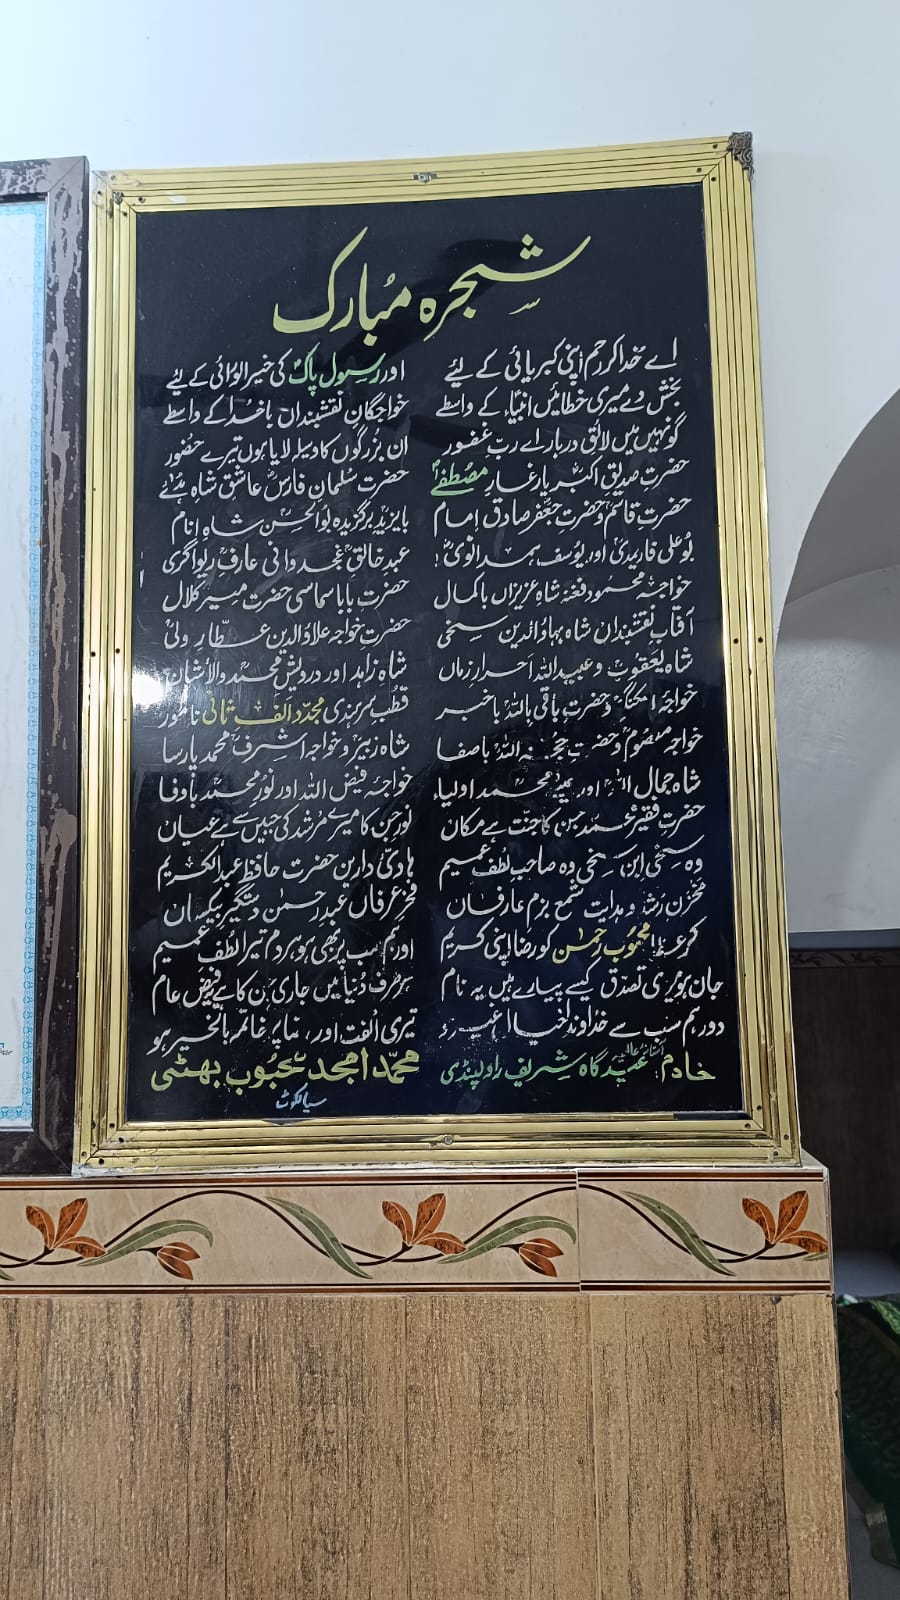 شجرہ مبارک
اے خدا کر رحم اپنی کبریائی کے لیئے اور رسول پاکؐ کی خیر الورائی کے لیئے
بخش دے میری خطائیں انبیاءؑ کے واسطے خواجگانِ نقشبنداں باخدا کے واسطے
گو نہیں میں لائقِ دربار اے ربِ غفور ان بزرگوں کا وسیلہ لایا ہوں تیرے حضور
حضرت صدیقِ اکبرؓ یارِ غارِ مصطفےٰؐ حضرت سلمان فارسؓ عاشق شاہ
حضرت قاسمؓ و حضرت جعفر صادق امام بایزیدؒ برگزیدہ بوالحسنؒ شاہِ انام
بوعلی فارمدیؒ اور یوسف ہمدانویؒ عبدخالقؒ غجدوانی عارفؒ ریواگری
خواجہ محمود فغنہ شاہِ عزیزاں باکمال حضرت بابا سماسی حضرت میر کلال
آفتابِ نقشبنداں شاہ بہاؤالدین سخی حضرتِ خواجہ علاؤالدین عطّارِ ولی
شاہ یعقوبؒ و عبیداللہ احرارِ زماں شاہ زاہد اور درویش محمد والاشان
خواجہ و حضرت باقی باللہؒ باخبر قطب سرہندی مجدد الف ثانی نامور
خواجہ معصومؒ و حضرتِ حجۃ اللہؒ باصفا شاہ زبیرؒ و خواجہ اشرفؒ محمد پارسا
شاہ جمال اللہؒ اور محمد اولیاء خواجہ فیض اللہ اور نور محمدؒ باوفا
حضرت فقیر محمد جن کا جنت ہے مکان نور جن کا میرے مرشد کی جبیں سے ہے عیاں
وہ سخی ابن سخی وہ صاحبِ لطفِ عمیم ہادیٔ دارین حضرت حافظ عبدالکریم
مخزنِ رشد و ہدایت شمع بزمِ عارفاں فخرِ عرفاں عبدرحمٰن دستگیرِ بیکساں
کر عطا محبوب رحمٰن کو رضا اپنی کریم اور ہم سب پر بھی ہو ہر دم تیرا لُطفِ عمیم
جان ہو میری تصدّق کیسے پیارے ہیں یہ نام ہر طرف دُنیا میں جاری جن کا ہے فیضِ عام
دور ہم سب سے خداوندا تیری الفت اور پر خاتمہ بالخیر ہو
خادم آستانہ عالیہ عیدگاہ شریف راولپنڈی محمّد امجد محبوب بھٹی
سیالکوٹ